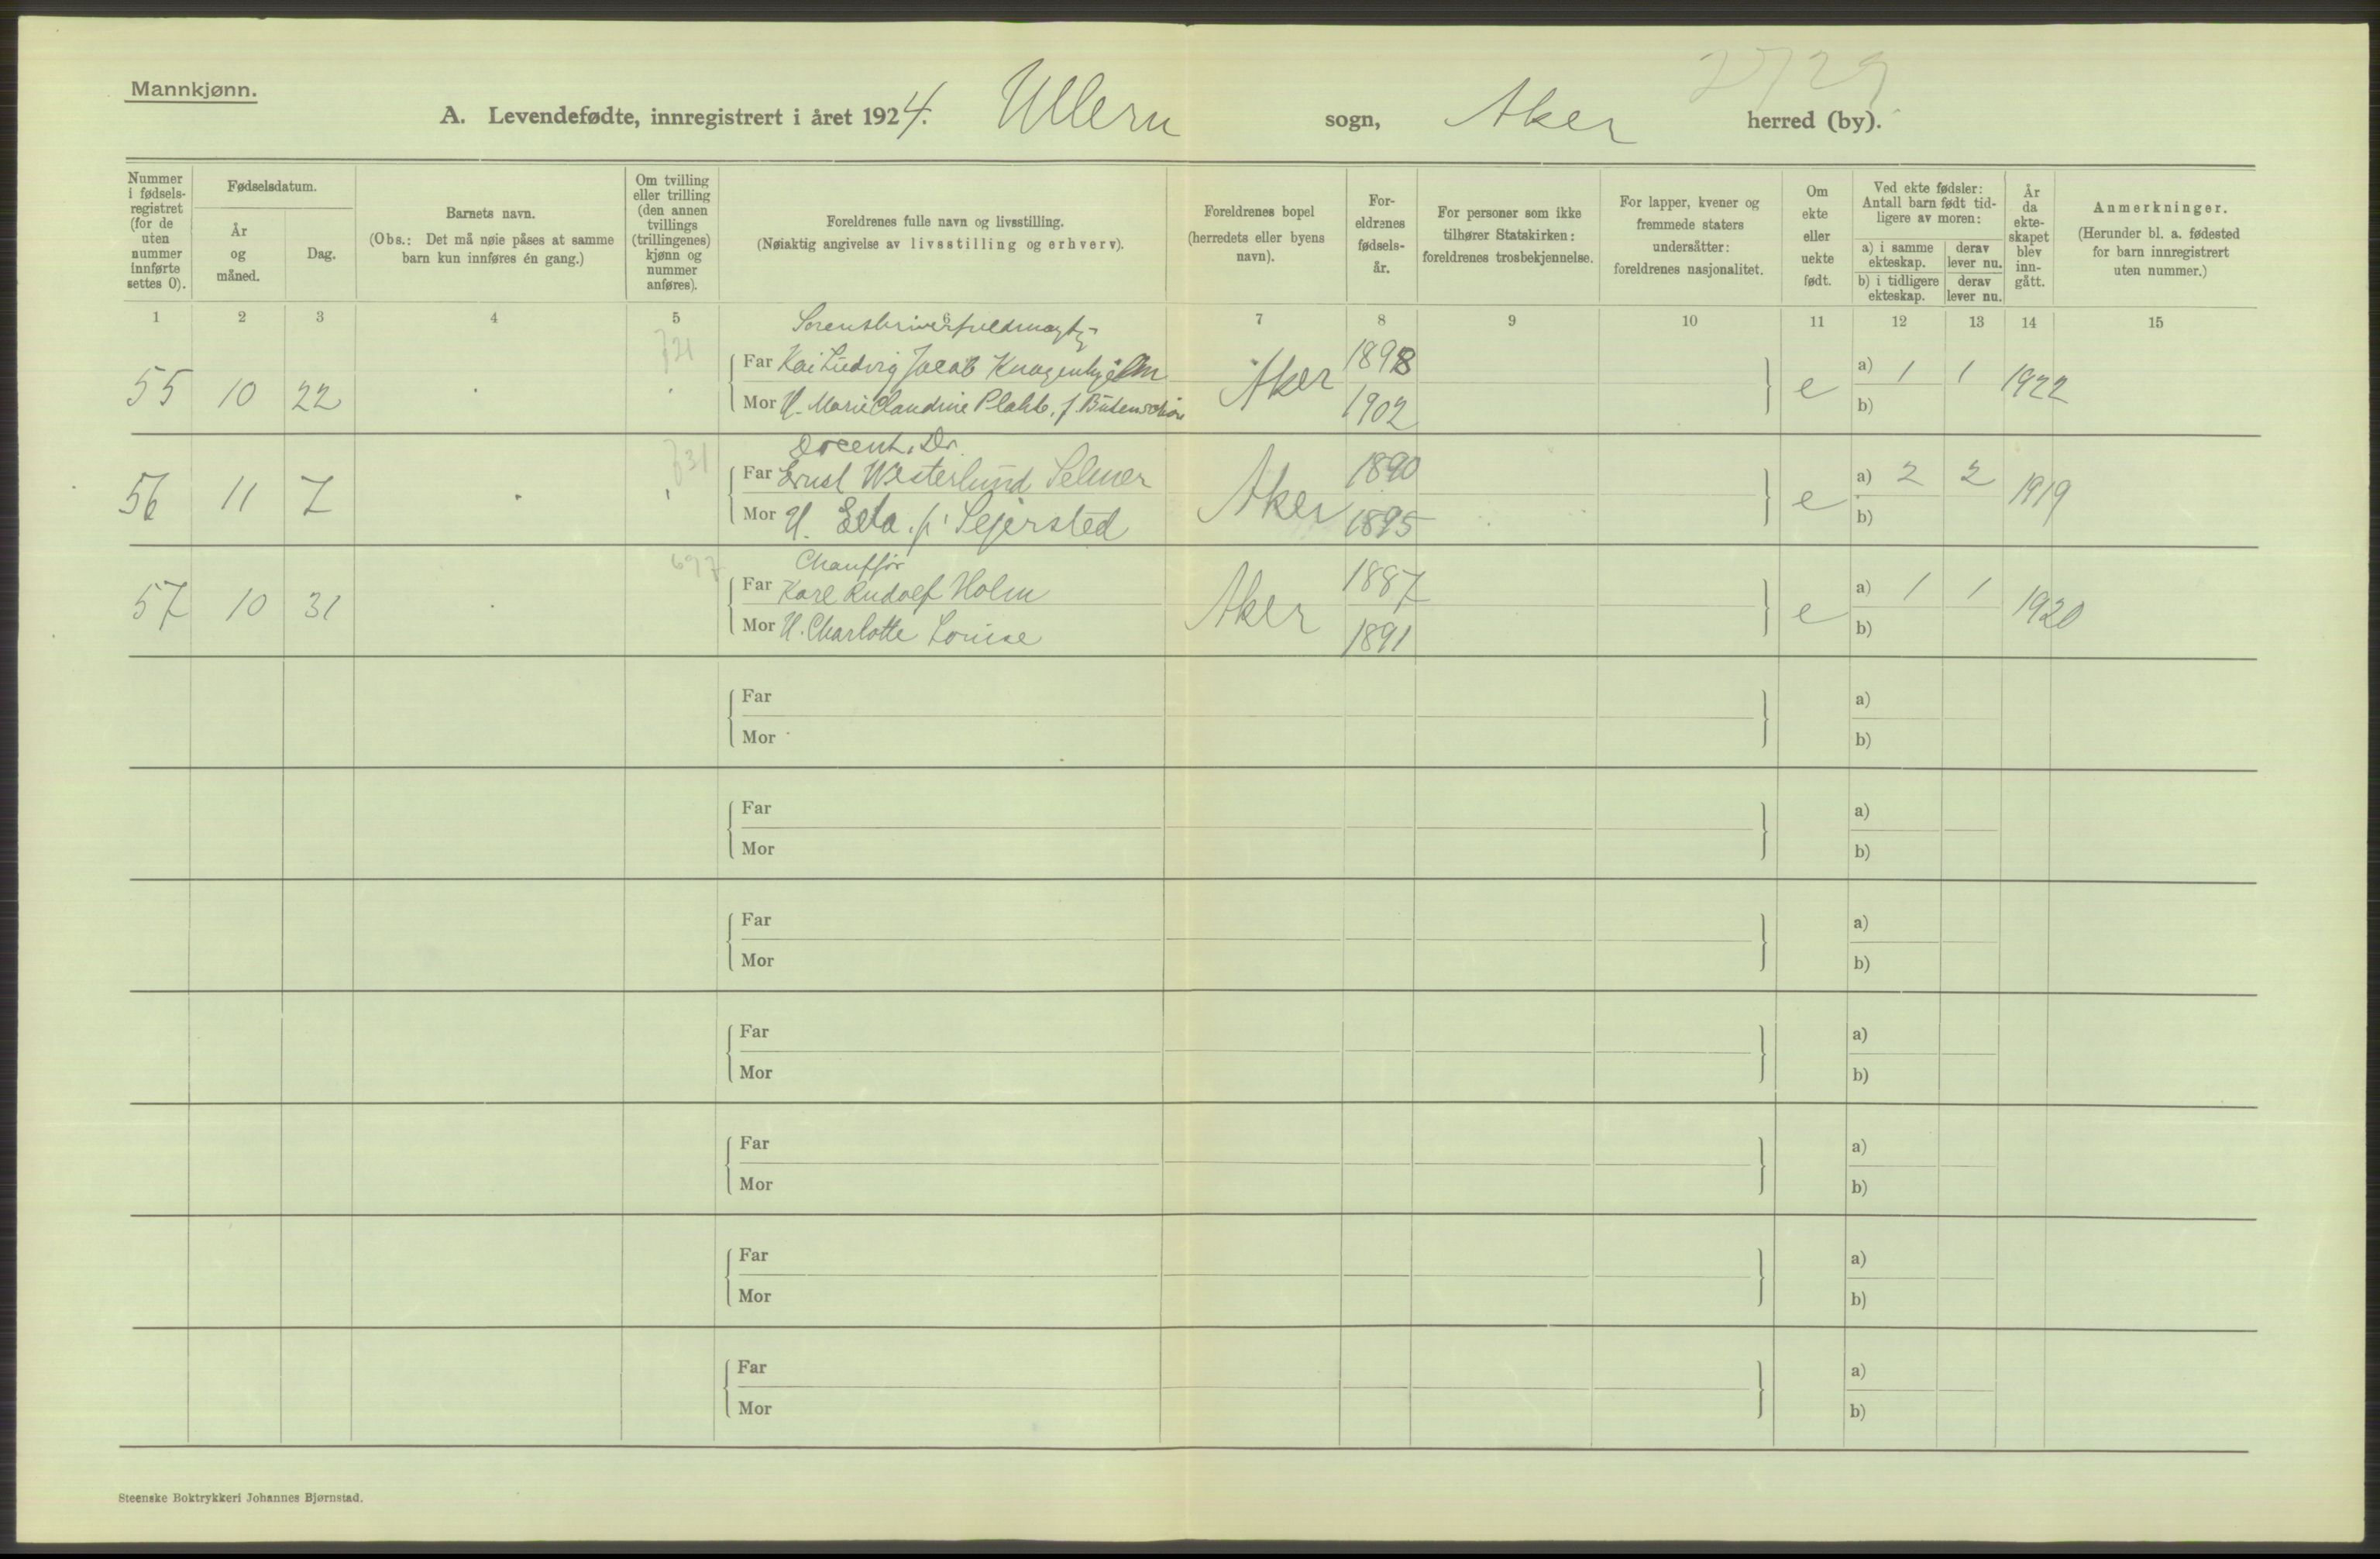 2729
Mannkjønn.
A. Levendefødte, innregistrert i året 1924. Ullern sogn, Aker herred (by).
Nummer i fødsels-registret (for de uten nummer innførte settes 0).
Fødselsdatum.
År og måned.
Dag.
Barnets navn.
(Obs.: Det må nøie påses at samme barn kun innføres én gang.)
Om tvilling eller trilling (den annen tvillings (trillingenes) kjønn og nummer anføres).
Foreldrenes fulle navn og livsstilling.
(Nøiaktig angivelse av livsstilling og erhverv).
Foreldrenes bopel (herredets eller byens navn).
For-eldrenes fødsels-år.
For personer som ikke tilhører Statskirken: foreldrenes trosbekjennelse.
For lapper, kvener og fremmede staters undersåtter: foreldrenes nasjonalitet.
Om ekte eller uekte født.
Ved ekte fødsler: Antall barn født tid-ligere av moren:
a) i samme ekteskap.
derav lever nu.
b) i tidligere ekteskap.
derav lever nu.
År da ekte-skapet blev inn-gått.
Anmerkninger.
(Herunder bl. a. fødested for barn innregistrert uten nummer.)
1 2 3 4 5 6 7 8 9 10 11 12 13 14 15
721
Sorenskriverfuldmægtig
55 10 22 Far Kai Ludvig Jacob Knagenhjelm Aker 1898 e a) 1 1 1922
Mor H. Marie Claudine Plahte, f. Butenschøn 1902 b)
731
Docent. Dr.
56 11 7 Far Ernst Westerlund Selmer Aker 1890 e a) 2 2 1919
Mor H. Ella f. Sejersted 1895 b)
697
Chauffør
57 10 31 Far Karl Rudolf Holm Aker 1887 e a) 1 1 1920
Mor H. Charlotte Louise 1891 b)
Far a)
Mor b)
Far a)
Mor b)
Far a)
Mor b)
Far a)
Mor b)
Far a)
Mor b)
Far a)
Mor b)
Far a)
Mor b)
Steenske Boktrykkeri Johannes Bjørnstad.